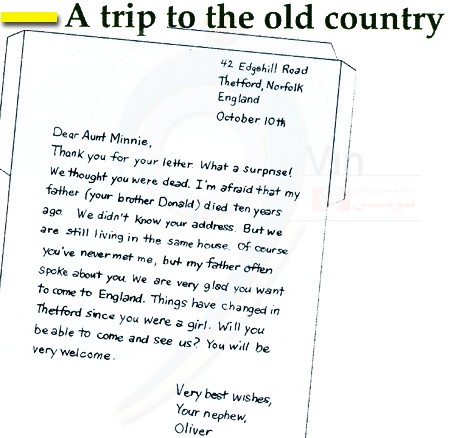 A trip to the old country
42 Edgehill Road
Thetford, Norfolk
England
October 10th
Dear Aunt Minnie,
Thank you for your letter. What a surprise!
We thought you were dead. I'm afraid that my
father (your brother Donald) died ten years
ago. We didn't know your address. But we
are still living in the same house. Of course
you've never met me, but my father often
spoke about you. We are very glad you want
to come to England. Things have changed in
Thetford since you were a girl. Will you
be able to come and see us? You will be
very welcome.
Very best wishes,
Your nephew,
Oliver
Vin